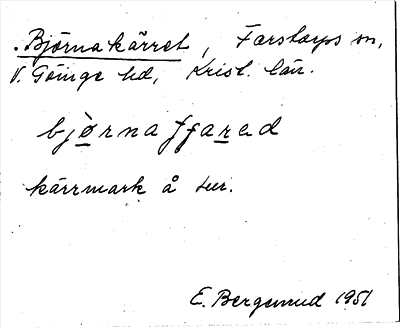 . Björnakärret, Farstorps sn,
V. Göinge hd, Krist. län.
bjørna ʃʃared
kärrmark å sur.
E. Bergemud 1951